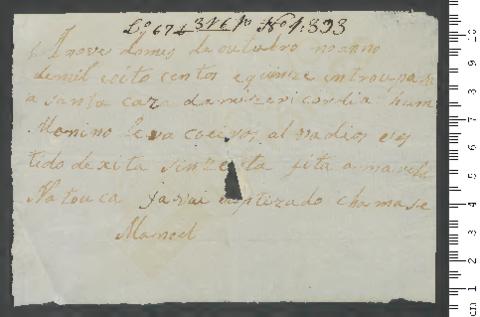 Lº 674 376 Nº 1:393
nove do mes de outubro no anno
de mil e oito centos e quinze entrou para
a santa caza da mizericordia hum
Menino Leva coeiros al vadios e ves
tido de xita sinzenta fita amarela
Na touca ja vai baptizado chamase
Manoel